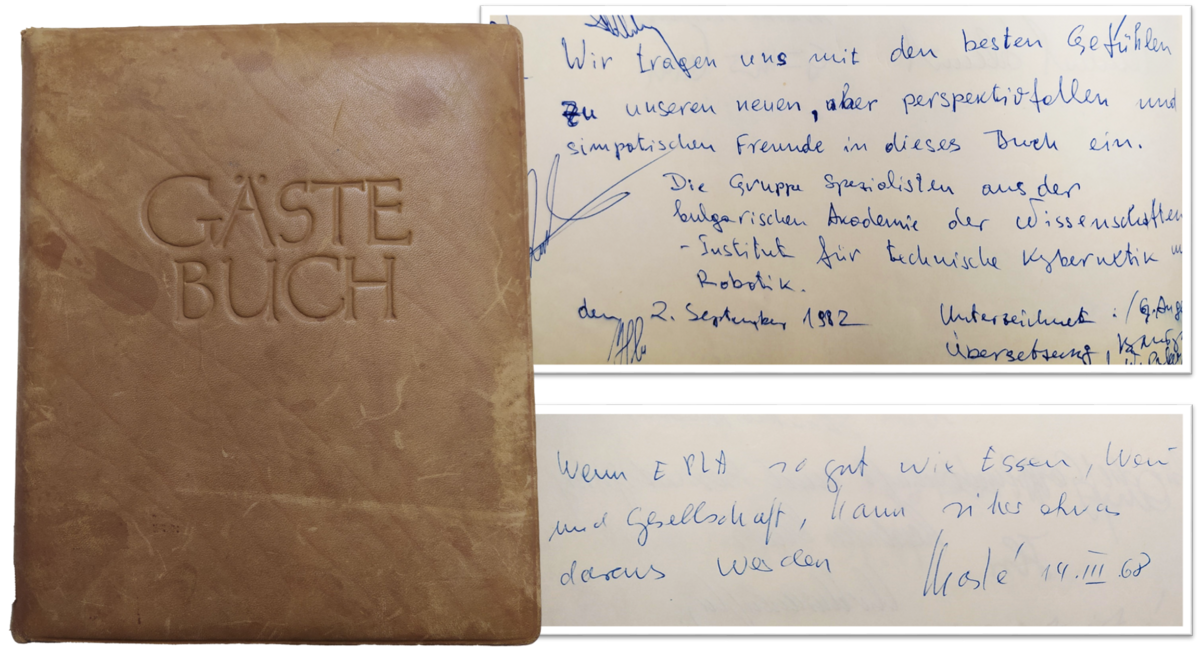 GÄSTE
BUCH
Wir tragen uns mit den besten Gefühlen
zu unseren neuen, aber perspektivfollen und
simpatischen Freunde in dieses Buch ein.
Die Gruppe Spezialisten aus der
bulgarischen Akademie der Wissenschaften
- Institut für technische Kybernetik
Robotik.
den 2. September 1982
Unterzeichnet : /G. Ang
Übersetzung,
Wenn EPLA so gut wie Essen, Wein
und Gesellschaft, kann sicher etwas
daraus werden
14.III.68